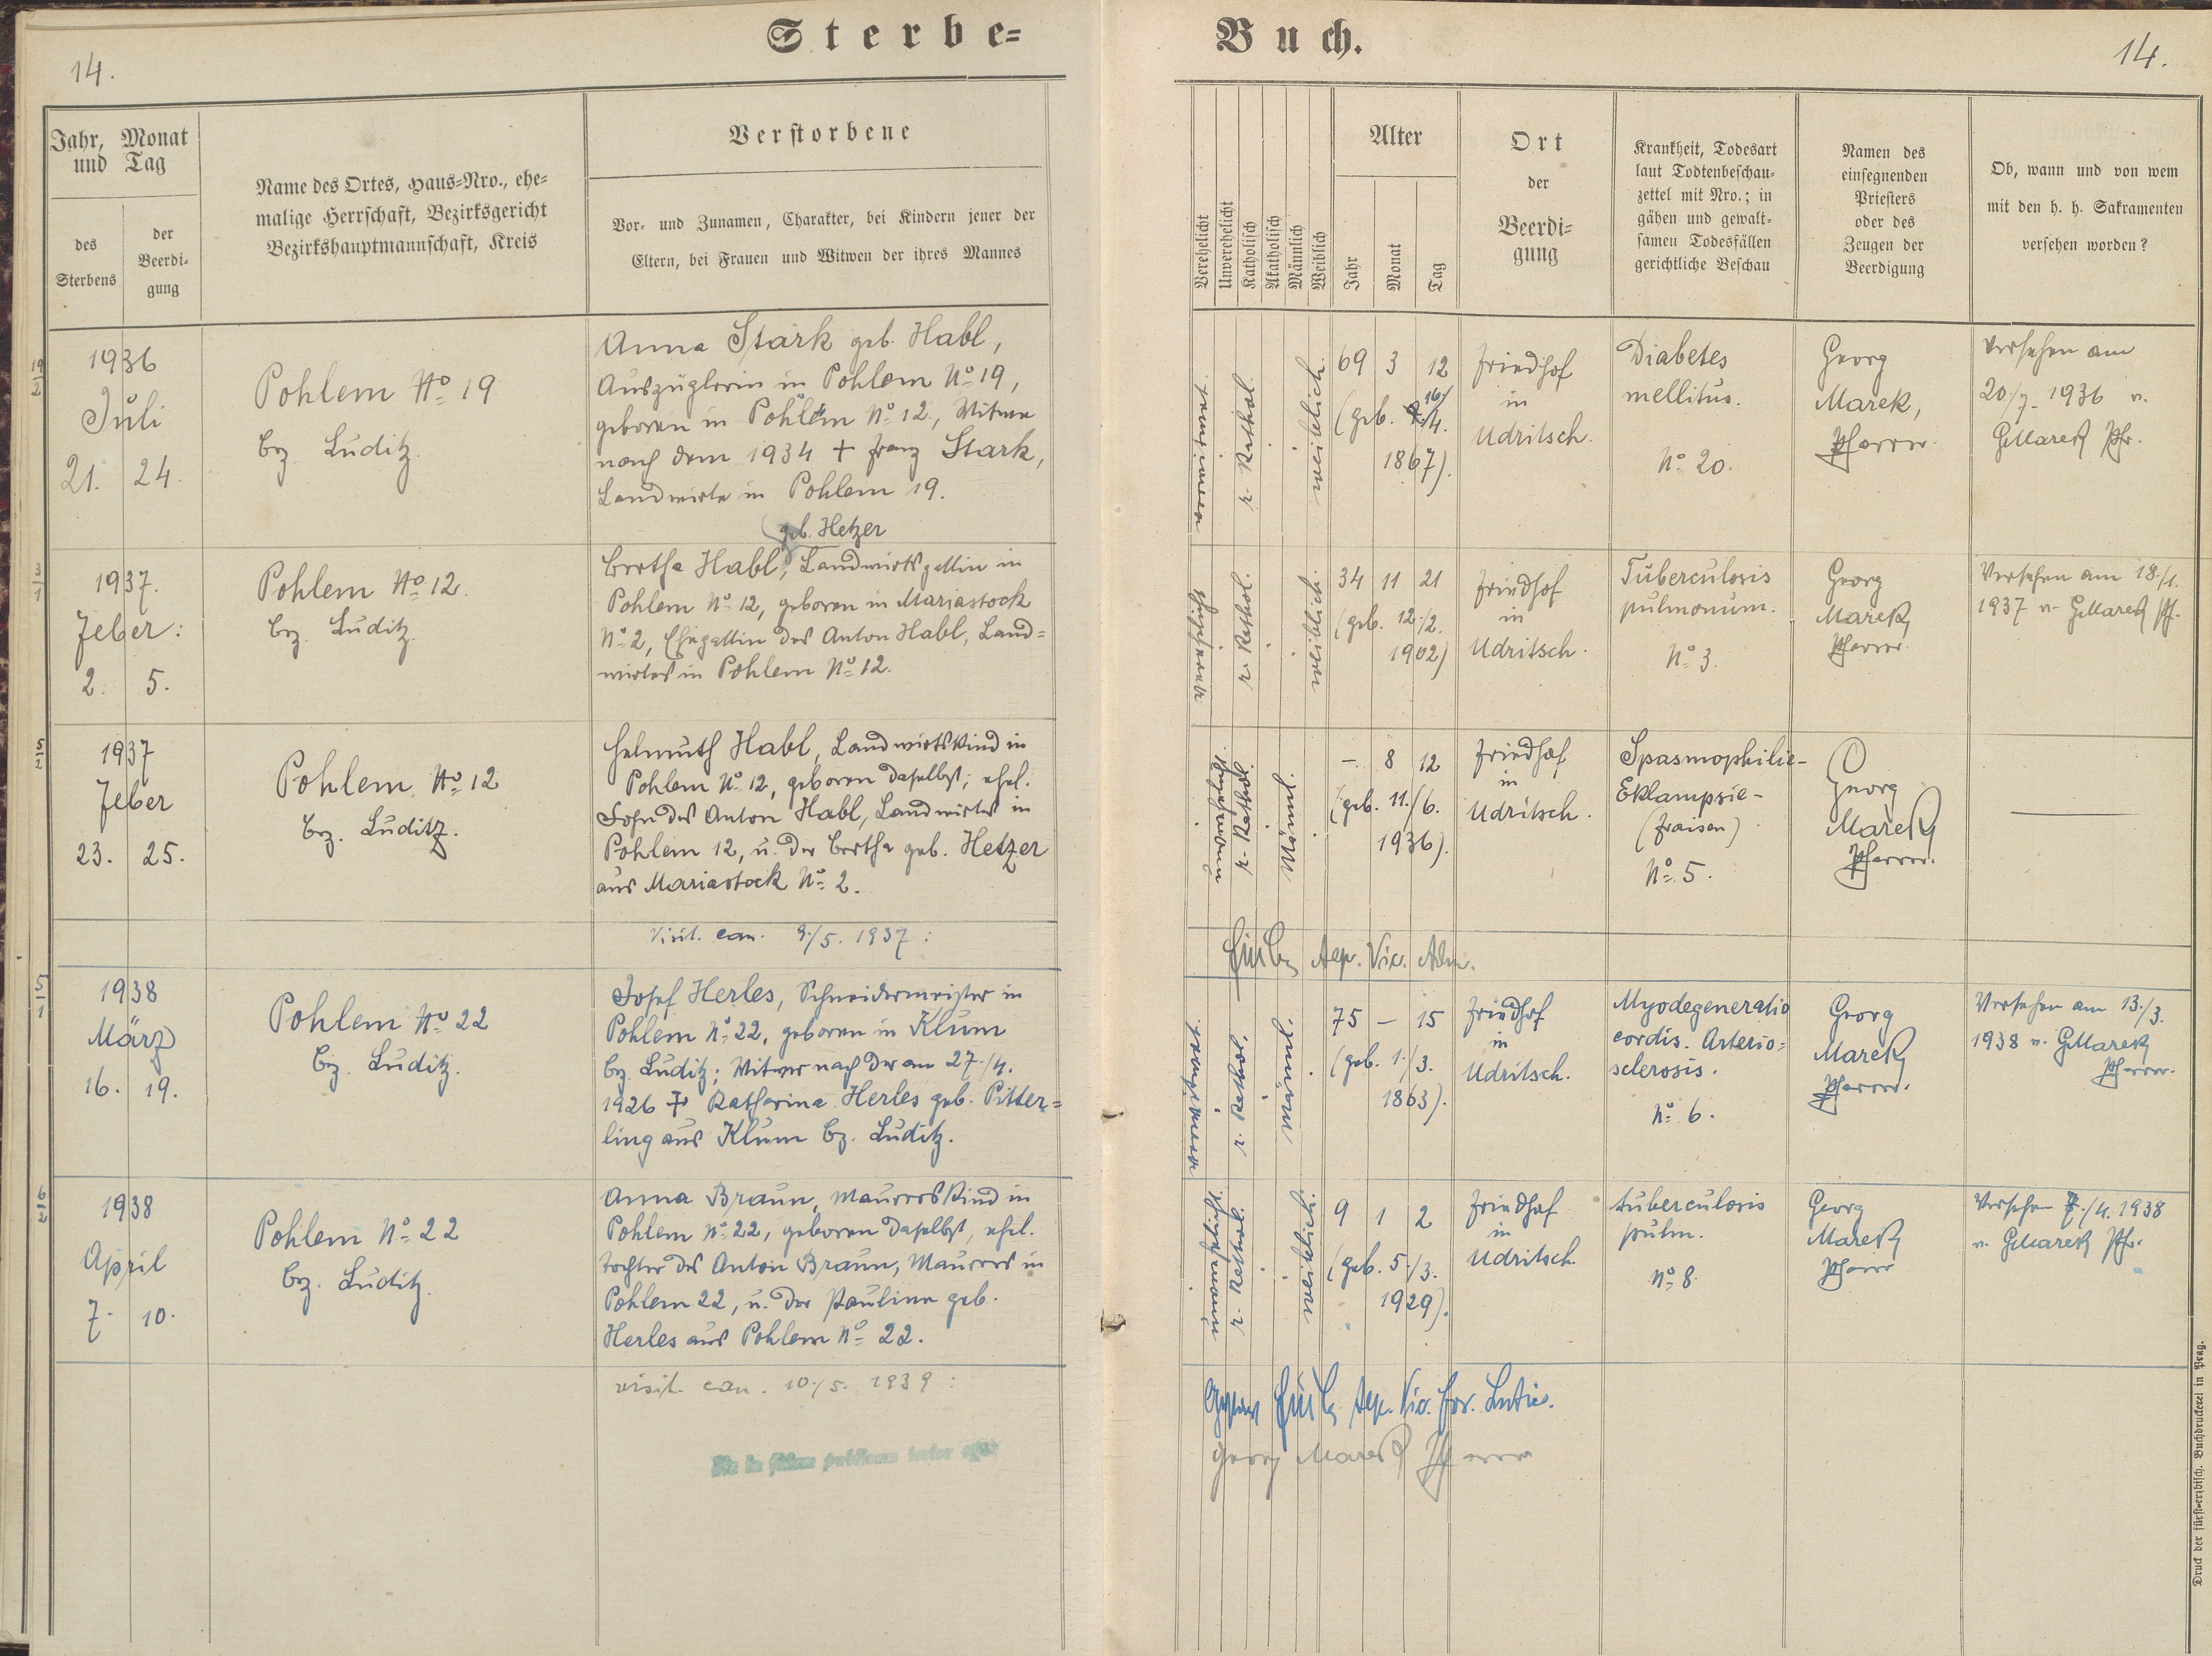 Sterbe=
14.
Jahr, Monat
und Tag
des
Sterbens
der
Beerdi-
gung
Name des Ortes, Haus-Nro., ehe-
malige Herrschaft, Bezirksgericht
Bezirkshauptmannschaft, Kreis
Verstorbene
Vor- und Zunamen, Charakter, bei Kindern jener der
Eltern, bei Frauen und Witwen der ihres Mannes
19/2
1936
Juli
21. 24.
Pohlem No 19
bez. Luditz.
Anna Stark geb. Habl,
Auszüglerin in Pohlem No 19,
geboren in Pohlem No 12, Witwe
nach dem 1934 + Franz Stark,
Landwirte in Pohlem 19.
3/1
1937.
Feber:
2. 5.
Pohlem No 12.
bez. Luditz.
geb. Hetzer
Bertha Habl, Landwirtsgattin in
Pohlem No 12, geboren in Mariastock
No 2, Ehegattin des Anton Habl, Land=
wirtes in Pohlem No 12.
5/2
1937
Feber
23. 25.
Pohlem No 12
bez. Luditz.
Helmuth Habl, Landwirtskind in
Pohlem No 12, geboren daselbst; ehel.
Sohn des Anton Habl, Landwirtes in
Pohlem 12, u. der Bertha geb. Hetzer
aus Mariastock No 2.
Visit. can. 9./5. 1937:
5/1
1938
März
16. 19.
Pohlem No 22
bez. Luditz.
Josef Herles, Schneidermeister in
Pohlem No 22, geboren in Klum
bez. Luditz; Witwer nach der am 27./4.
1926 + Katharina Herles geb. Pitter=
ling aus Klum bez. Luditz.
6/2
1938
April
7. 10.
Pohlem No 22
bez. Luditz.
Anna Braun, Maurerskind in
Pohlem No 22, geboren daselbst, ehel.
Tochter des Anton Braun, Maurers in
Pohlem 22, u. der Pauline geb.
Herles aus Pohlem No 22.
visit. can. 10./5. 1939:
Buch.
14.
Verehelicht
Unverehelicht
Katholisch
Akatholisch
Männlich
Weiblich
Alter
Jahr
Monat
Tag
Ort
der
Beerdi=
gung
Krankheit, Todesart
laut Todtenbeschau-
zettel mit Nro.; in
gähen und gewalt-
samen Todesfällen
gerichtliche Beschau
Namen des
einsegnenden
Priesters
oder des
Zeugen der
Beerdigung
Ob, wann und von wem
mit den h. h. Sakramenten
versehen worden?
verwitwet
r. kathol.
weiblich
69 3 12
(geb. 16/4.
1867).
Friedhof
in
Udritsch.
Diabetes
mellitus.
No 20.
Georg
Marek,
Pfarrer.
Versehen am
20./7. 1936 v.
GMarek Pfr.
verehelicht
r. kathol.
weiblich
34 11 21
(geb. 12./2.
1902)
Friedhof
in
Udritsch.
Tuberculosis
pulmonum.
No 3.
Georg
Marek
Pfarrer.
Versehen am 18./1.
1937 v. GMarek Pf.
unverehelicht
r. kathol.
Männl.
– 8 12
(geb. 11./6.
1936).
Friedhof
in
Udritsch.
Spasmophilie-
Eklampsie-
(Fraisen)
No 5.
Georg
Marek
Pfarrer.
Vic.
verwitwet
r. kathol.
männl.
75 – 15
(geb. 1./3.
1863).
Friedhof
in
Udritsch.
Myodegeneratio
cordis. Arterio=
sclerosis.
No 6.
Georg
Marek
Pfarrer.
Versehen am 13./3.
1938 v. GMarek
Pfarrer.
unverehelicht
r. kathol.
weiblich
9 1 2
(geb. 5./3.
1929).
Friedhof
in
Udritsch.
tuberculosis
pulm.
No 8.
Georg
Marek
Pfarrer
Versehen 7./4. 1938
v. GMarek Pfr.
Vic. for.
Georg Marek Pfarrer
Druck der fürst-erzbisch. Buchdruckerei in Prag.